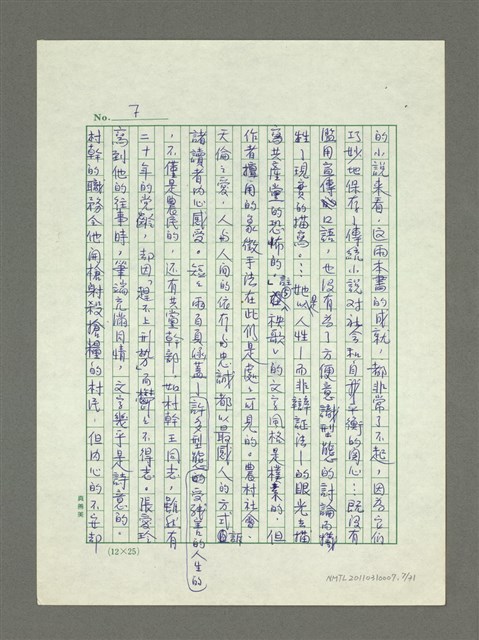 No. 7
的小說來看，這兩本書的成就，都非常了不起，因為它們
巧妙地保存了傳統小說對社會和自我平衡的關心…既沒有
濫用宣傳口語，也沒有為了方便意識型態的討論而犧
牲了現實的描寫。…她是以人性—而非辯證法—的眼光去描
寫共產黨的恐怖的。」「秧歌」的文字風格是樸素的，但
作者擅用的象徵手法在此仍是處處可見的。農村社會、
天倫之愛，人與人間的依存與忠誠都以最感人的方式直訴
諸讀者內心感受。短短兩百頁涵蓋了許多型態的受殘害的人生的
，不僅是農民的，還有共黨幹部—如村幹王同志，雖然有
二十年的党齡，却因「趕不上形勢」而鬱鬱不得志。張愛玲
寫到他的往事時，筆端充滿同情，文字幾乎是詩意的。
村幹的職務令他開槍射殺搶糧的村民，但內心的不安却
(12×25)
NMTL20110310007.7/41